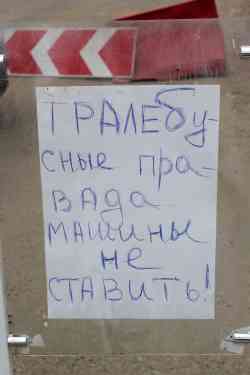 ТРАЛЕБУ-
сные пра-
вада
машины
не
ставить!